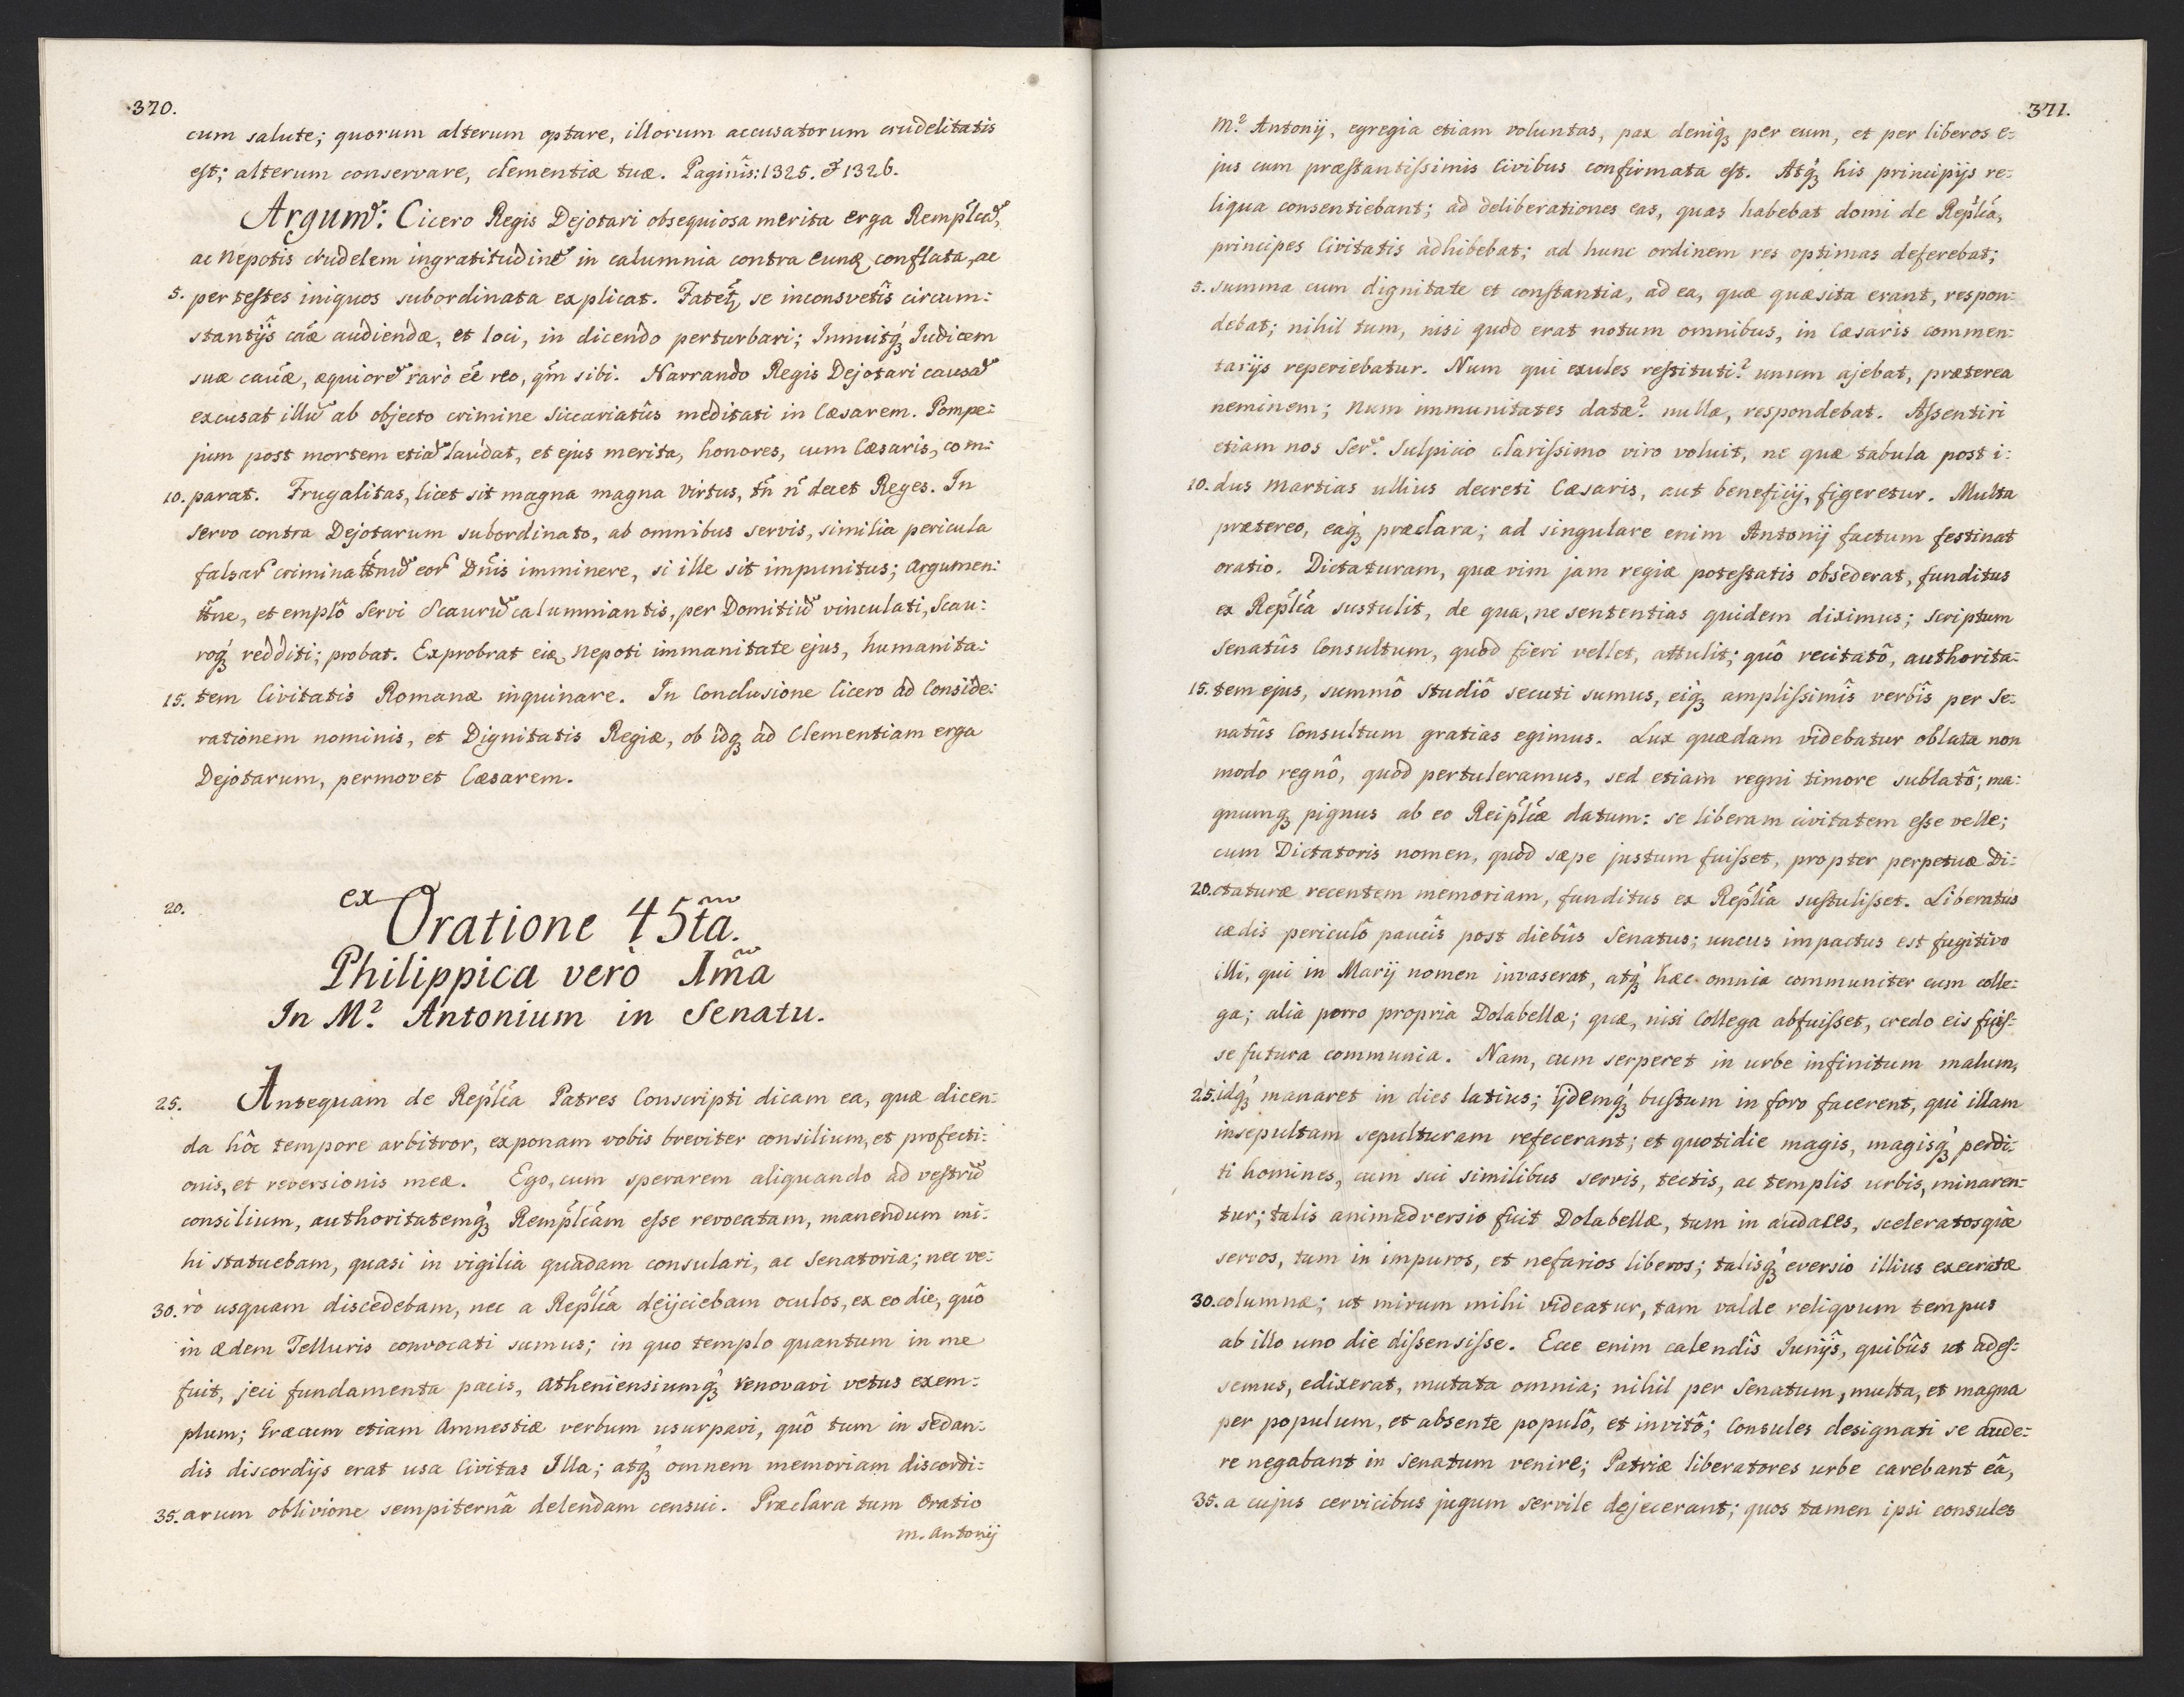 370.
cum salute; quorum alterum optare, illorum accusatorum crudelitatis
est; alterum conservare, clementiæ tuæ. Paginis: 1325. & 1326.
Argum: Cicero Regis Dejotari obsequiosa merita erga Remplcã,
ac Nepotis crudelem ingratitudinẽ in calumnia contra eunq conflata, ac
5. per testes iniquos subordinata explicat. Fatetq se inconsvetis circum:
stantijs cãæ audiendæ, et loci, in dicendo perturbari; Innuitq Iudicem
suæ caũæ, æquiorẽ rarò eẽ reo, qm̃ sibi. Narrando Regis Dejotari causã
excusat illũ ab objecto crimine siccariatûs meditati in Cæsarem. Pompe:
jum post mortem etiã laudat, et ejus merita, honores, cum Cæsaris, com:
10. parat. Frugalitas, licet sit magna magna virtus, tñ ñ decet Reges. In
servo contra Dejotarum subordinato, ab omnibus servis, similia pericula
falsar criminatt̃nũ eor Dñis imminere, si ille sit impunitus; argumen:
tt̃ne, et emplõ servi Scaurũ calumniantis, per Domitiũ vinculati, Scau:
roq redditi; probat. Exprobrat eiq Nepoti immanitate ejus, humanita:
15. tem Civitatis Romanæ inquinare. In Conclusione Cicero ad Conside:
rationem nominis, et Dignitatis Regiæ, ob idq ad Clementiam erga
Dejotarum, permovet Cæsarem.
20.
ex Oratione 45tã.
Philippica verò Imã
In M? Antonium in Senatu.
25. Antequam de Replcã Patres Conscripti dicam ea, quæ dicen:
da hôc tempore arbitror, exponam vobis breviter consilium, et profecti:
onis, et reversionis meæ. Ego, cum sperarem aliquando ad vestrũ
consilium, authoritatemq Remplcãm esse revocatam, manendum mi:
hi statuebam, quasi in vigilia quadam consulari, ac Senatoria; nec ve:
30. rò usquam discedebam, nec a Replcã dejiciebam oculos, ex eo die, quô
in ædem Telluris convocati sumus; in quo templo quantum in me
fuit, jeci fundamenta pacis, Atheniensiumq renovavi vetus exem:
plum; Græcum etiam Amnestiæ verbum usurpavi, quô tum in sedan:
dis discordijs erat usa Civitas Illa; atq omnem memoriam discordi:
35. arum oblivione sempiternâ delendam censui. Præclara tum Oratio
m. Antonij
371.
M? Antonij, egregia etiam voluntas, pax deniq per eum, et per liberos e:
jus cum præstantissimis Civibus confirmata est. Atq his principijs re:
liqua consentiebant; ad deliberationes eas, quas habebat domi de Replcã,
principes Civitatis adhibebat; ad hunc ordinem res optimas deferebat;
5. summa cum dignitate et constantia, ad ea, quæ quæsita erant, respon:
debat; nihil tum, nisi quod erat notum omnibus, in Cæsaris commen:
tarijs reperiebatur. Num qui exules restituti? unum ajebat, præterea
neminem; Num immunitates datæ? nulla, respondebat. Assentiri
etiam nos Ser. Sulpicio clarissimo viro voluit, ne quæ tabula post i:
10. dus Martias ullius decreti Cæsaris, aut beneficij, figeretur. Multa
prætereo, eaq præclara; ad singulare enim Antonij factum festinat
oratio. Dictaturam, quæ vim jam regiæ potestatis obsederat, funditus
ex Replcã sustulit, de qua, ne sententias quidem diximus; scriptum
Senatûs Consultum, quod fieri vellet, attulit; quô recitatô, authorita:
15. tem ejus, summô studiô secuti sumus, eiq amplissimîs verbîs per Se:
natûs Consultum gratias egimus. Lux quædam videbatur oblata non
modo regnô, quod pertuleramus, sed etiam regni timore sublatô; ma:
gnumq pignus ab eo Reiplcæ datum: se liberam civitatem esse velle;
cum Dictatoris nomen, quod sæpe justum fuisset, propter perpetuæ Di:
20. ctaturæ recentem memoriam, funditus ex Replcã sustulisset. Liberatus
cædis periculô paucîs post diebûs Senatus; uncus impactus est fugitivo
illi, qui in Marij nomen invaserat, atq hæc omnia communiter cum colle:
ga; alia porro propria Dolabellæ; quæ, nisi Collega abfuisset, credo eis fuis:
se futura communia. Nam, cum serperet in urbe infinitum malum,
25. idq manaret in dies latius; ijdemq bustum in foro facerent, qui illam
insepultam sepulturam refecerant; et quotidie magis, magisq perdi:
ti homines, cum sui similibus servis, tectis, ac templis urbis, minaren:
tur; talis animadversio fuit Dolabellæ, tum in audaces, sceleratosque
servos, tum in impuros, et nefarios liberos; talisq eversio illius execratæ
30. columnæ; ut mirum mihi videatur, tam valde reliquum tempus
ab illo uno die dissensisse. Ecce enim calendîs Junijs, quibûs ut ades:
semus, edixerat, mutata omnia; nihil per Senatum, multa, et magna
per populum, et absente populô, et invitô; Consules designati se aude:
re negabant in Senatum venire; Patriæ liberatores urbe carebant eâ,
35. a cujus cervicibus jugum servile dejecerant; quos tamen ipsi consules